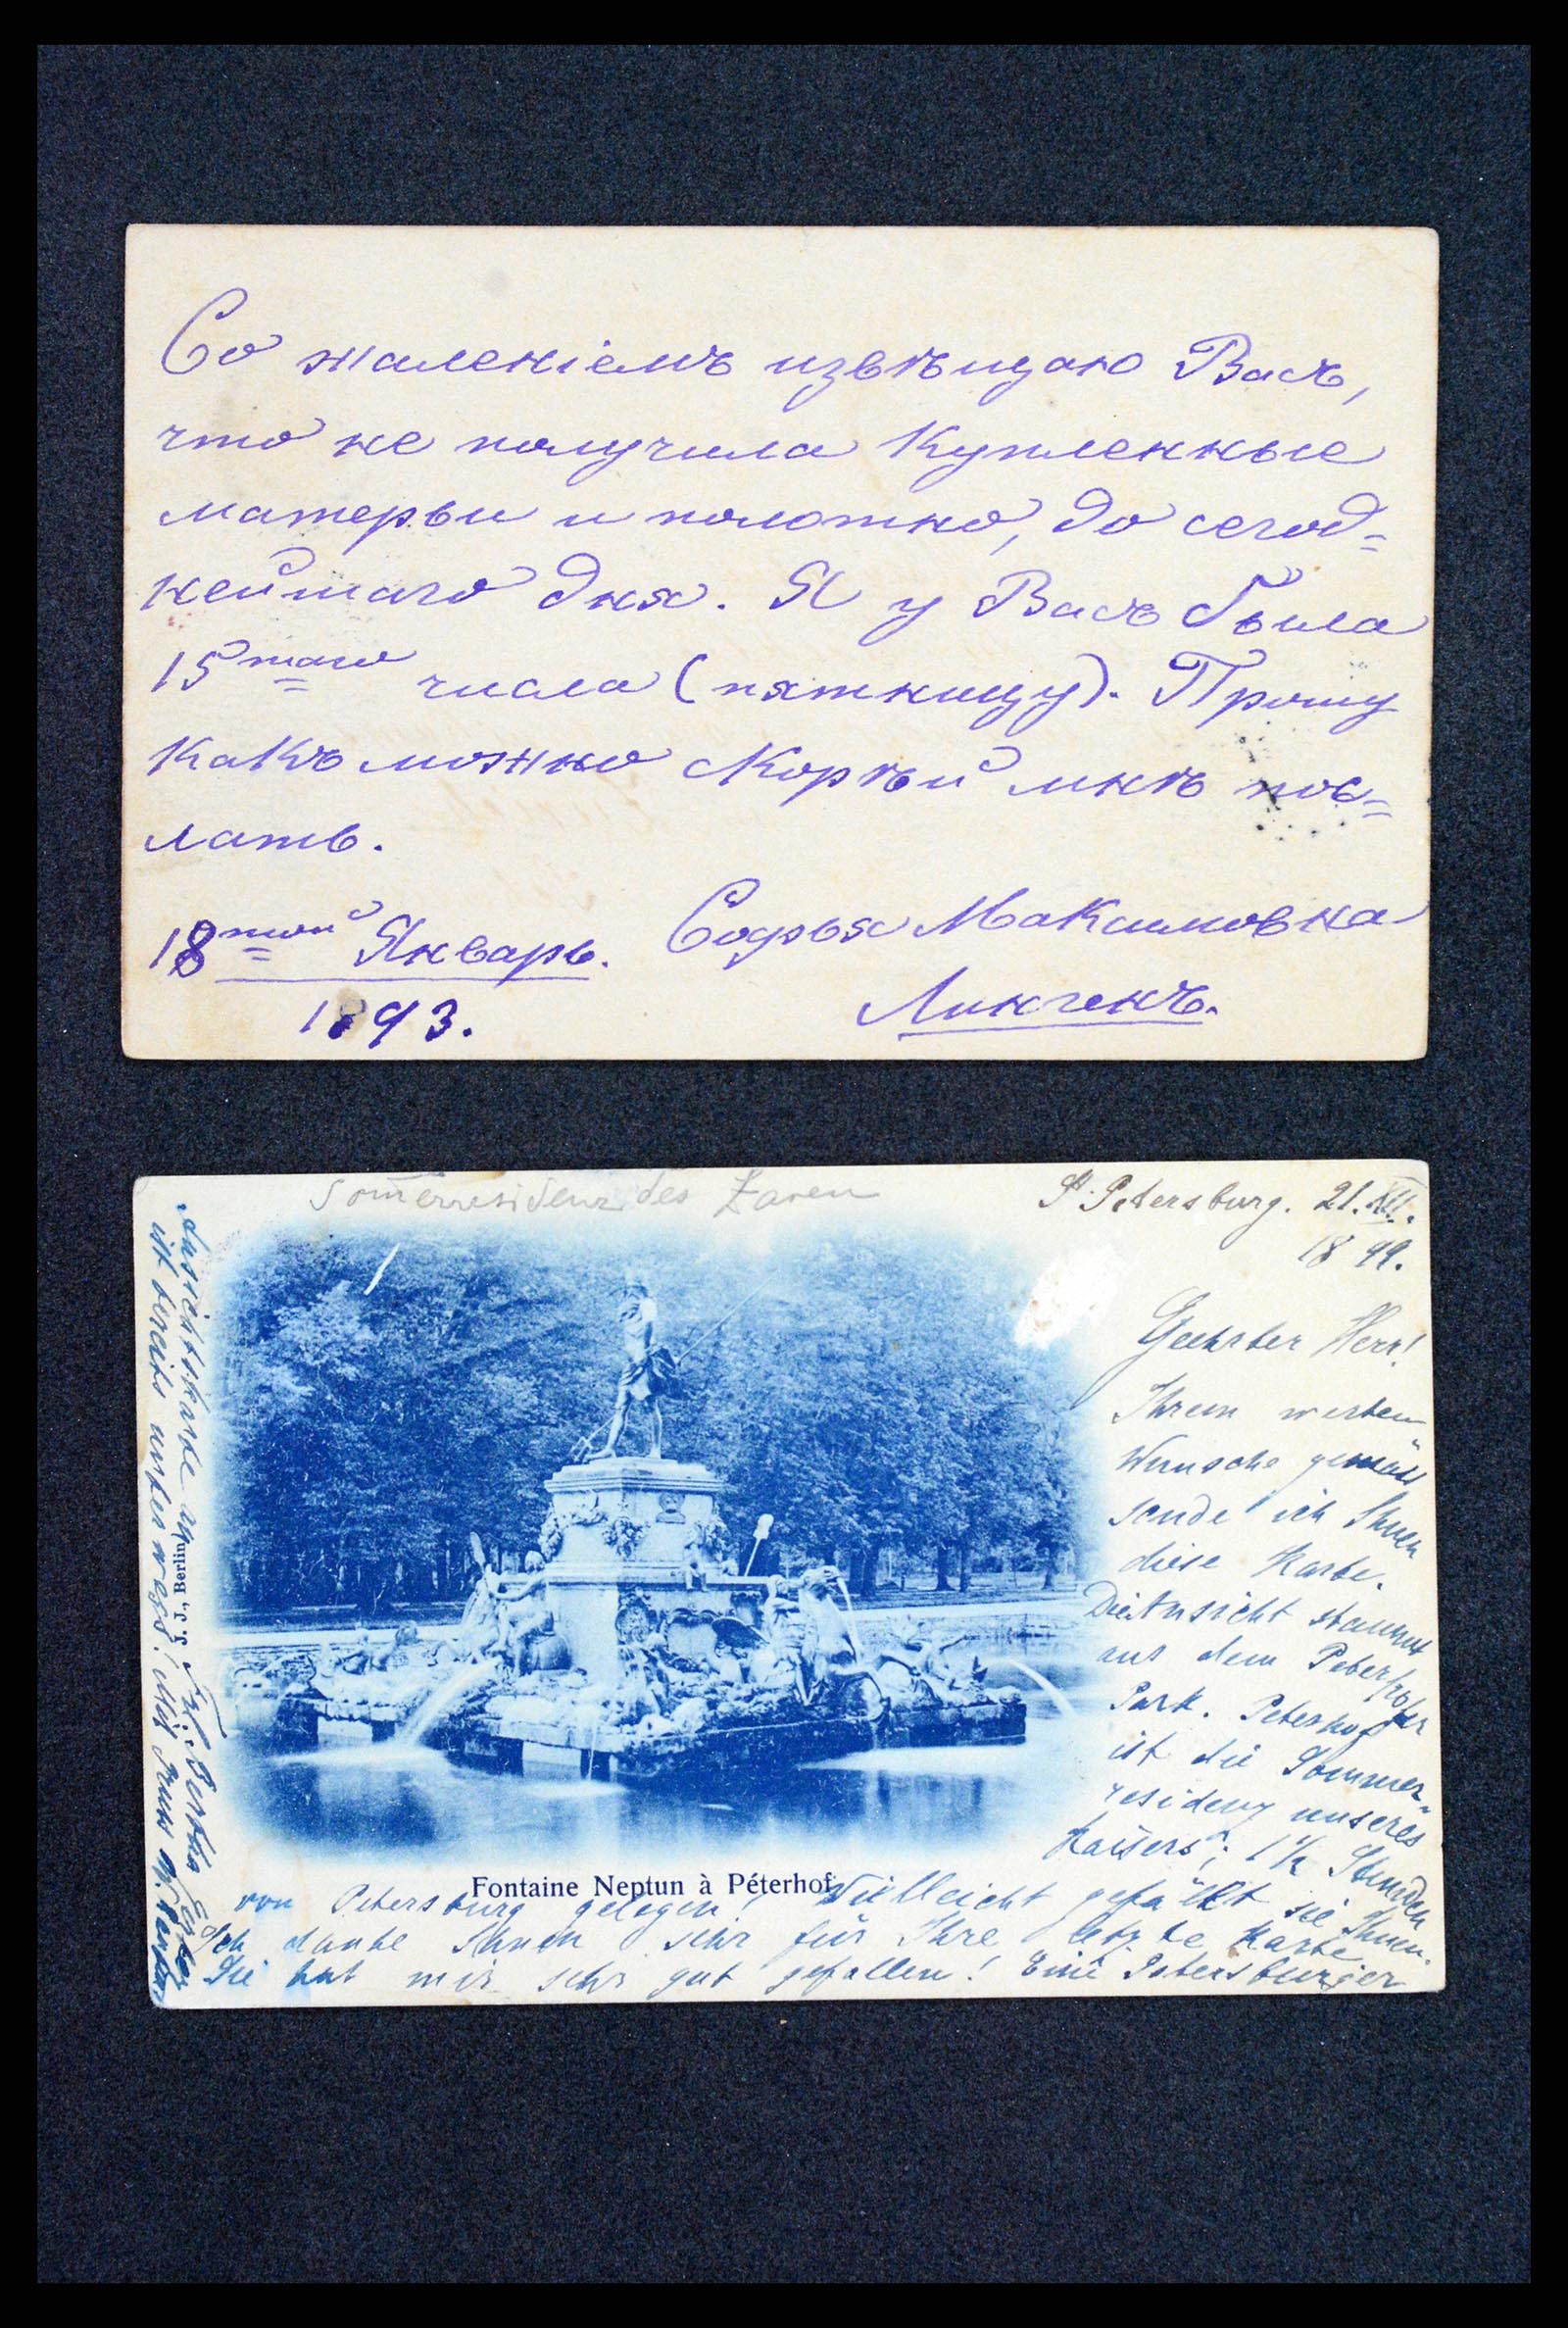 Со жаленіемъ извѣщаю Васъ,
что не получила Купленные
матерьи и полотно, до сегод=
нейшаго дня. Я у Васъ была
15таго числа (пятницу). Прошу
Какъ можно скорѣй мнѣ пос=
лать.
18той Январь.
1893.
Софья Максимовна
Линген.
Sommerresidenz des Zaren
St. Petersburg. 21.XII.
1899.
Geehrter Herr!
Ihrem werten
Wunsche gemäss
sende ich Ihnen
diese Karte.
Die Ansicht stammt
aus dem Peterhofer
Park. Peterhof
ist die Sommer-
residenz unseres
Kaisers; 1 1/2 Stunden
Fontaine Neptun à Péterhof
von Petersburg gelegen! Vielleicht gefällt sie Ihnen.
Ich danke Ihnen sehr für Ihre letzte Karte.
Sie hat mir sehr gut gefallen! Eine Petersburger
Ansichtskarte
ist bereits unterwegs! Mit Gruss
J. J., Berlin
Frl. Bertha